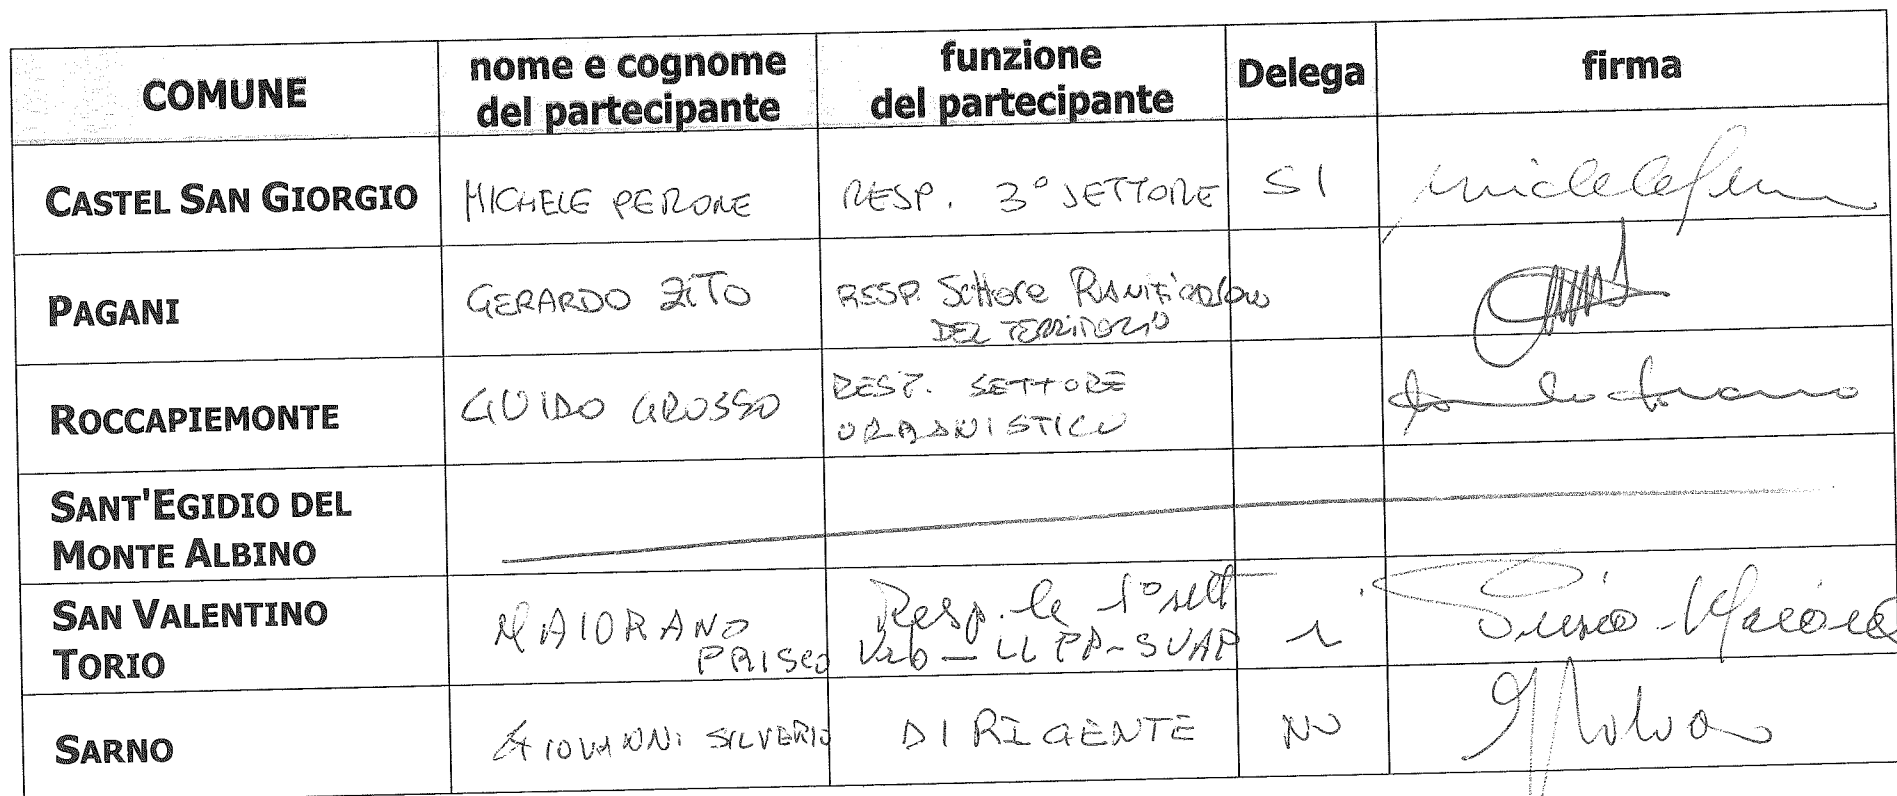 COMUNE
nome e cognome
del partecipante
funzione
del partecipante
Delega
firma
CASTEL SAN GIORGIO
MICHELE PERONE
RESP. 3° SETTORE
SI
PAGANI
GERARDO ZITO
RESP. Settore PIANIFICAZIONE
DEL TERRITORIO
ROCCAPIEMONTE
GUIDO GROSSO
RESP. SETTORE
URBANISTICO
SANT'EGIDIO DEL
MONTE ALBINO
SAN VALENTINO
TORIO
MAIORANO
PRISCO
Resp.le 1° sett
Urb - LL PP - SUAP
Prisco Maiorano
SARNO
GIOVANNI SILVERIO
DIRIGENTE
NO